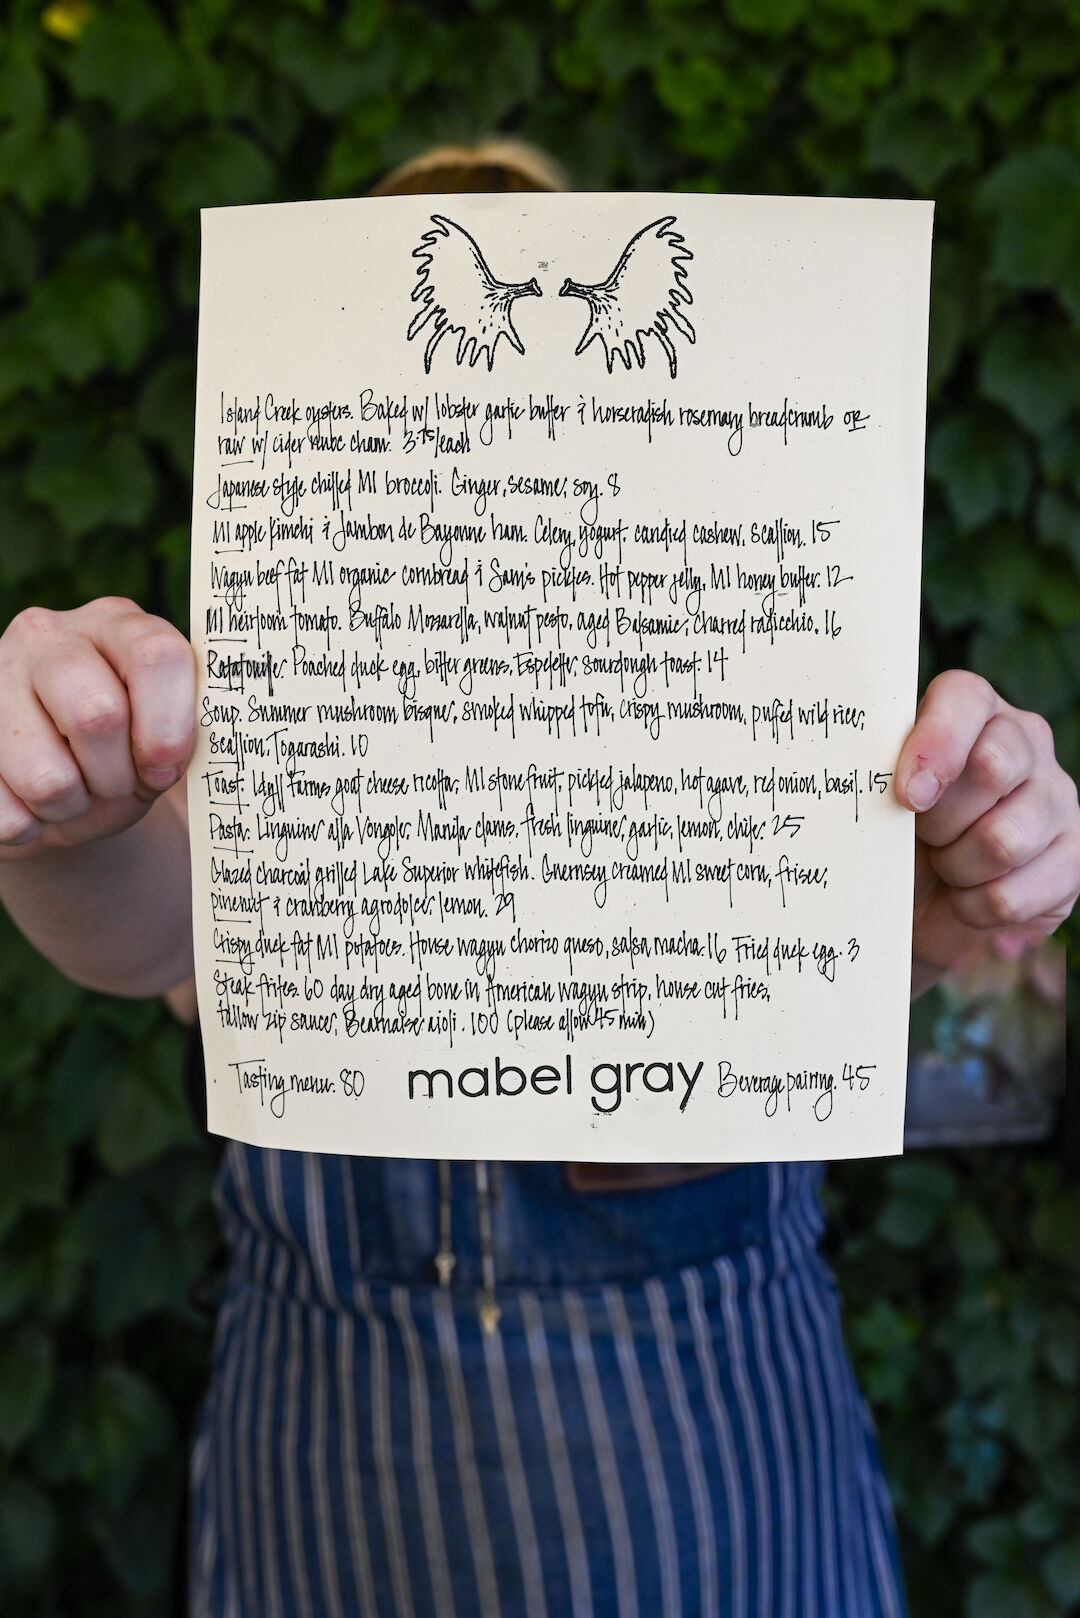 Island Creek oysters. Baked w/ lobster garlic butter & horseradish rosemary breadcrumb or
raw w/ cider nuoc cham. 3.75/each
Japanese style chilled MI broccoli. Ginger, sesame, soy. 8
MI apple kimchi & Jambon de Bayonne ham. Celery, yogurt, candied cashew, scallion. 15
Wagyu beef fat MI organic cornbread & Sam's pickles. Hot pepper jelly, MI honey butter. 12
MI heirloom tomato. Buffalo Mozzarella, walnut pesto, aged Balsamic, charred radicchio. 16
Ratatouille. Poached duck egg, bitter greens, Espelette, sourdough toast. 14
Soup. Summer mushroom bisque, smoked whipped tofu, crispy mushroom, puffed wild rice,
scallion, Togarashi. 10
Toast. Idyll Farms goat cheese ricotta, MI stone fruit, pickled jalapeno, hot agave, red onion, basil. 15
Pasta. Linguine alla Vongole. Manila clams, fresh linguine, garlic, lemon, chile. 25
Glazed charcoal grilled Lake Superior whitefish. Guernsey creamed MI sweet corn, frisee,
pinenut & cranberry agrodolce, lemon. 29
Crispy duck fat MI potatoes. House wagyu chorizo queso, salsa macha. 16 Fried duck egg. 3
Steak frites. 60 day dry aged bone in American wagyu strip, house cut fries,
tallow zip sauce, Bearnaise aioli. 100 (please allow 45 min)
Tasting menu. 80 mabel gray Beverage pairing. 45